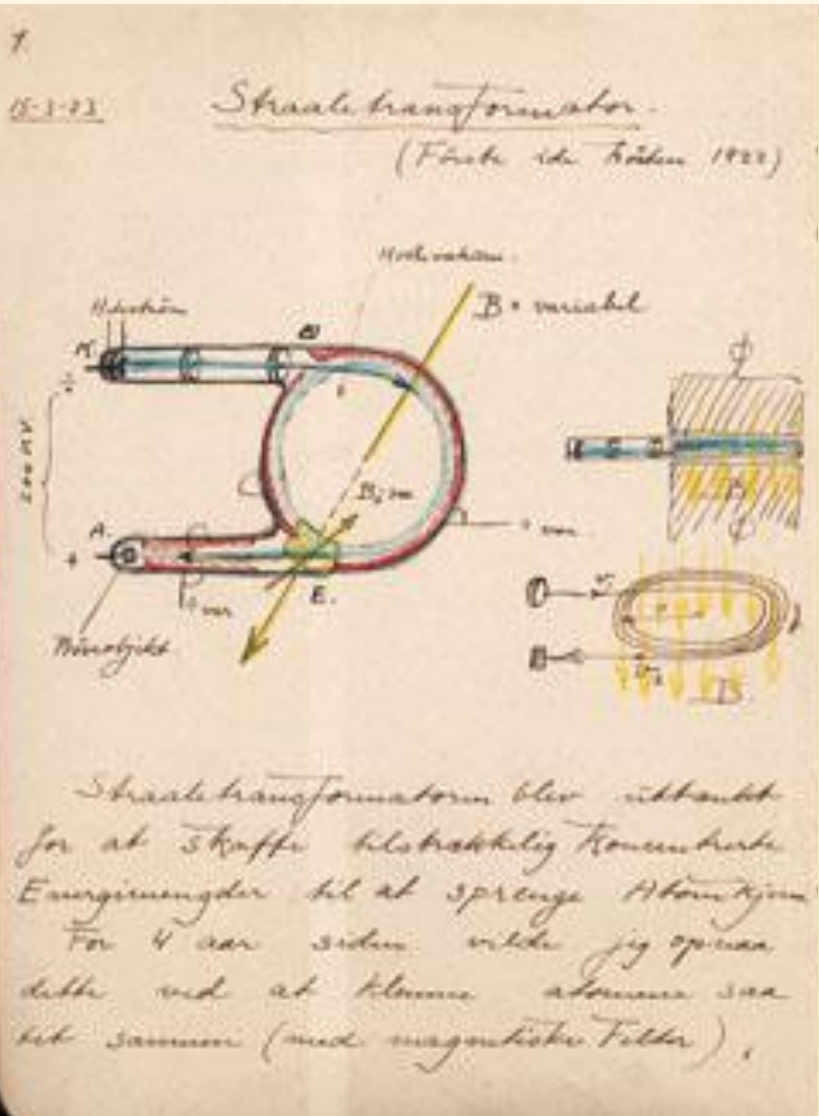 1.
15-3-23
Straaletransformator.
(Förste ide hösten 1922)
B = variabel
K.
200 KV.
A.
+
E.
B
Straaletransformatoren blev uttænkt
for at skaffe tilstrækkelig Koncentrerte
Energimengder til at sprenge Atomkjern
For 4 aar siden vilde jeg opnaa
dette ved at klemme atomene saa
tet sammen (med magnetiske Felter).